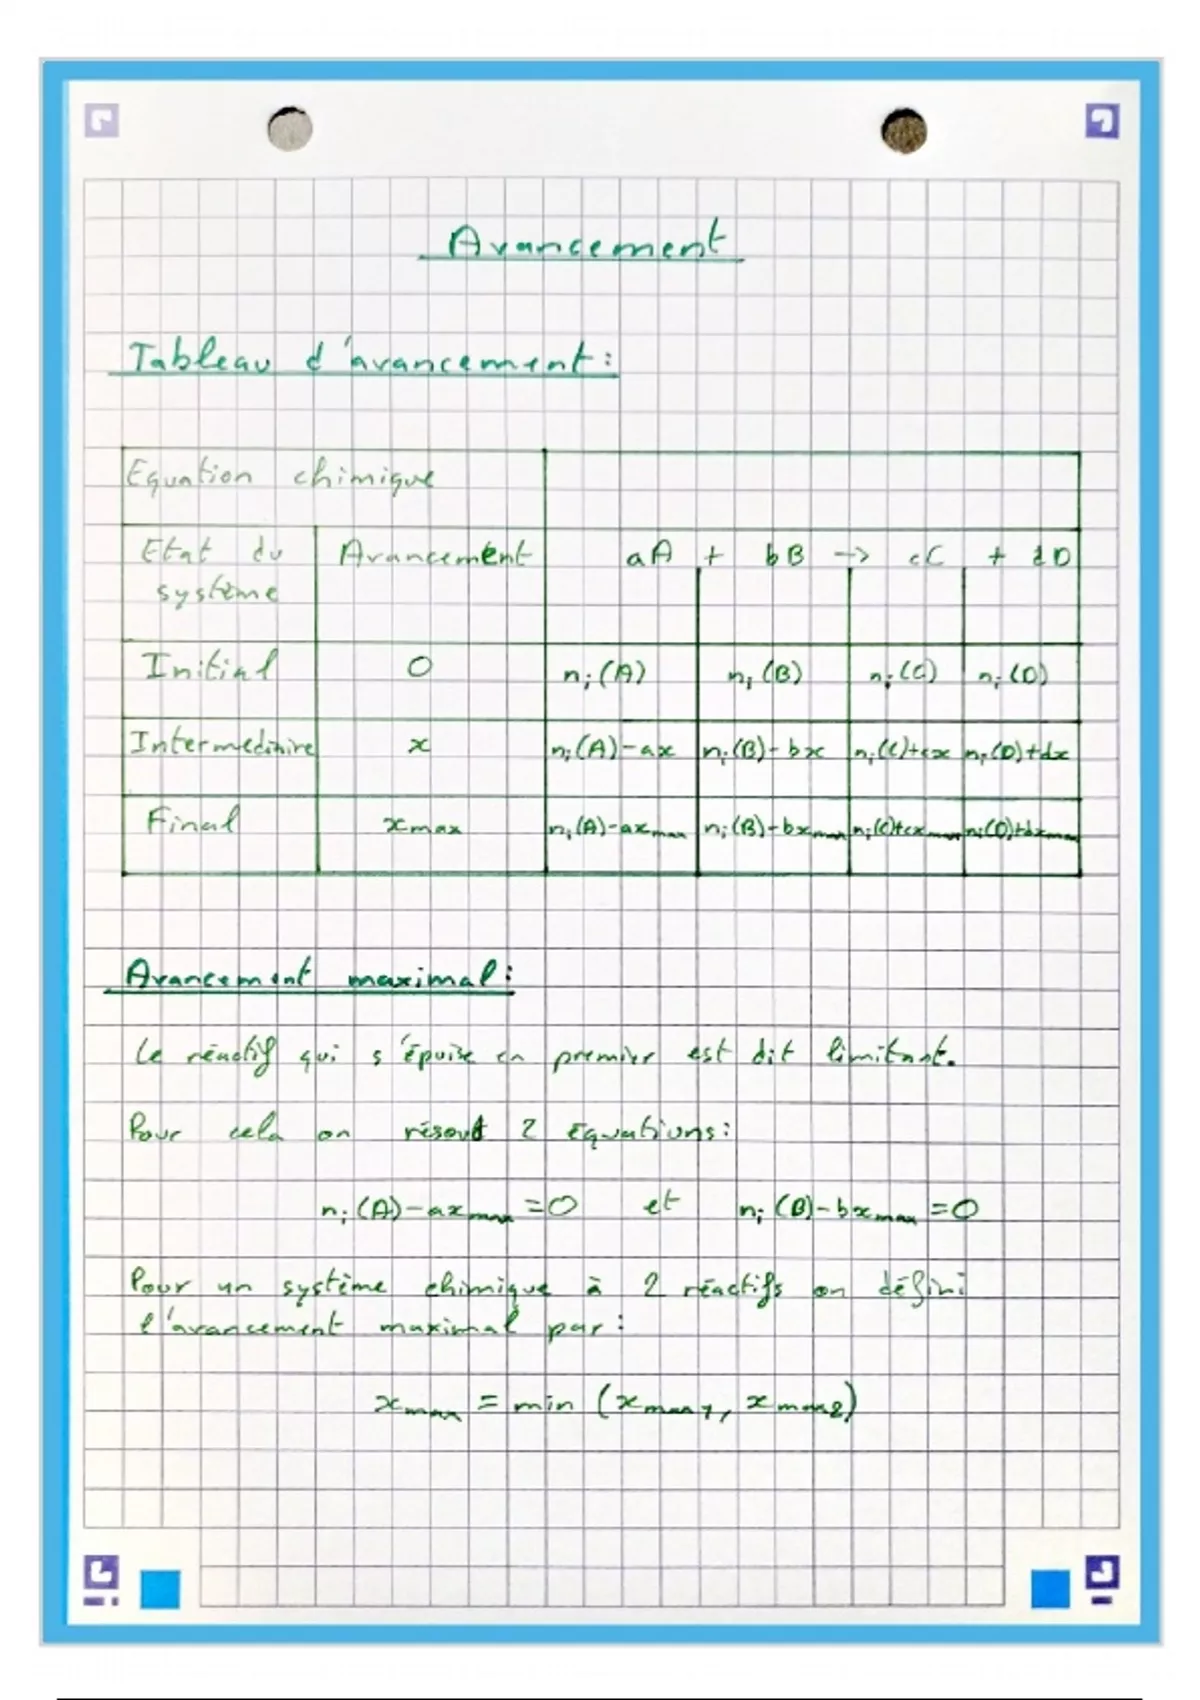 Avancement
Tableau d'avancement :
Equation chimique
Etat du système | Avancement | aA + bB -> cC + dD
Initial | 0 | ni(A) | ni(B) | ni(C) | ni(D)
Intermédiaire | x | ni(A)-ax | ni(B)-bx | ni(C)+cx | ni(D)+dx
Final | xmax | ni(A)-axmax | ni(B)-bxmax | ni(C)+cxmax | ni(D)+dxmax
Avancement maximal :
Le réactif qui s'épuise en premier est dit limitant.
Pour cela on résout 2 équations :
ni(A)-axmax =0 et ni(B)-bxmax =0
Pour un système chimique à 2 réactifs on défini
l'avancement maximal par :
xmax = min (xmax1, xmax2)